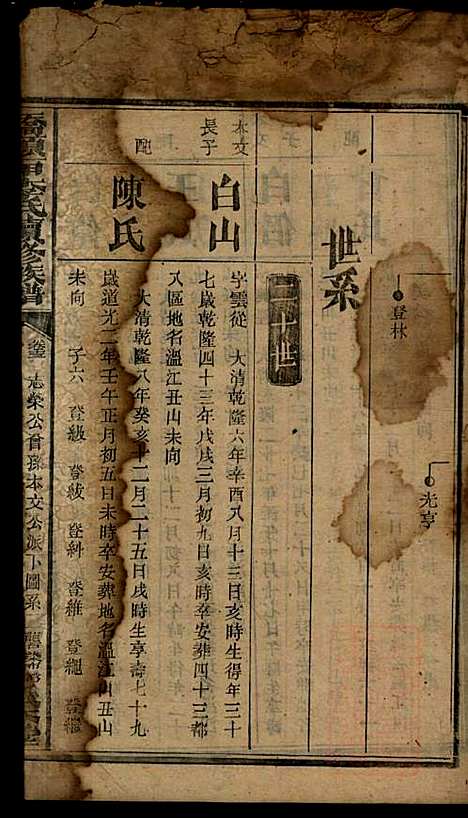 登林
光亨
世系
二十世
本文長子
白山
字雲從　大清乾隆六年辛酉八月十三日亥時生得年三十
七歲乾隆四十三年戊戌三月初九日亥時卒安葬四十三都
八區地名溫江丑山未向
配
陳氏
大清乾隆八年癸亥十二月二十五日戌時生享壽七十九
歲道光二年壬午正月初五日未時卒安葬地名溫江山丑山
未向　子六　登級　登紱　登科　登維　登繩　登繼
氏續修族譜
卷三　志榮公曾孫本文公派下圖系